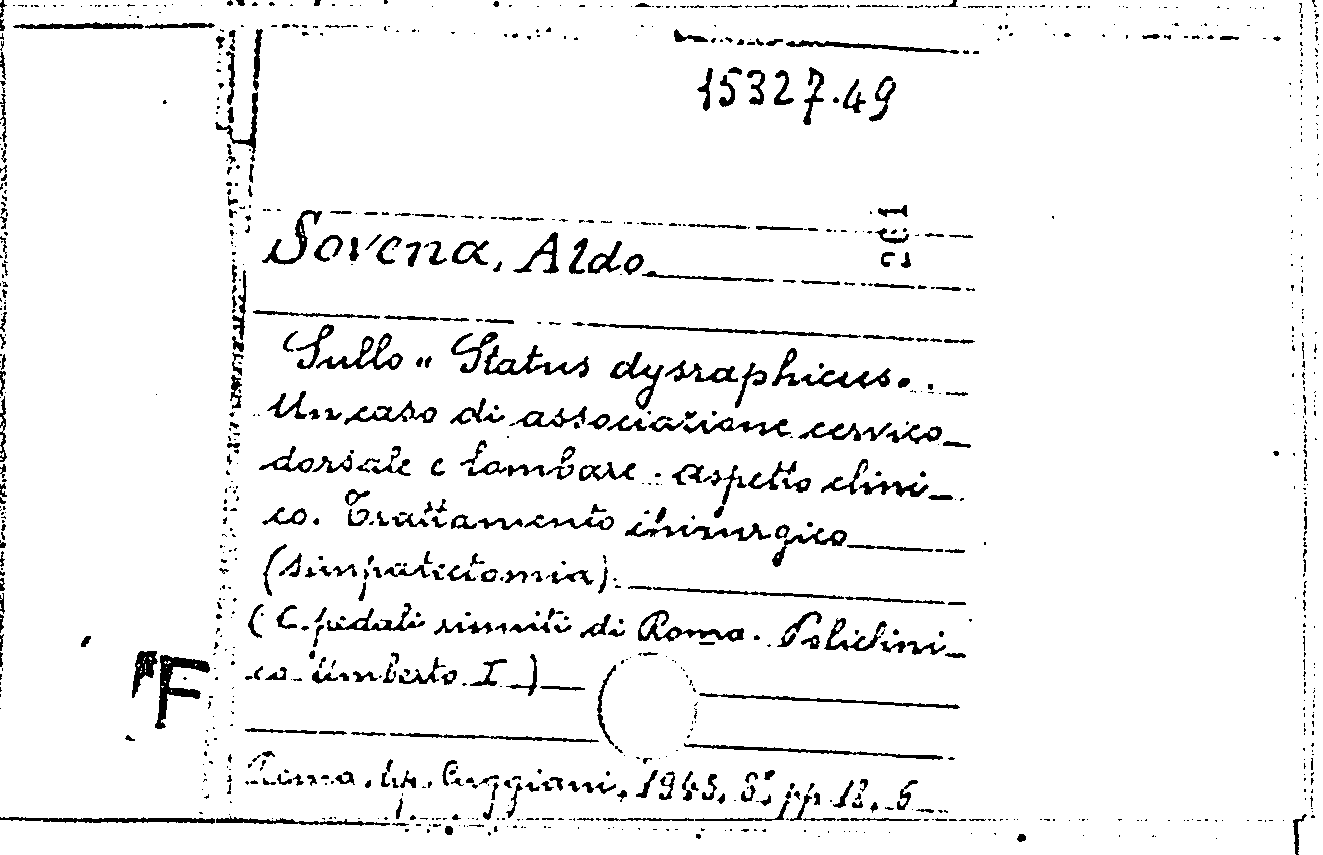 15327.49
Sovena, Aldo
Sullo "Status dysraphicus".
Un caso di associazione cervico
dorsale e lombare. Aspetto clini-
co. Trattamento chirurgico
(simpatectomia).
(Ospedali riuniti di Roma. Policlini-
co Umberto I)
F
Roma, tip. Cuggiani, 1943, 8°, pp 18, 6